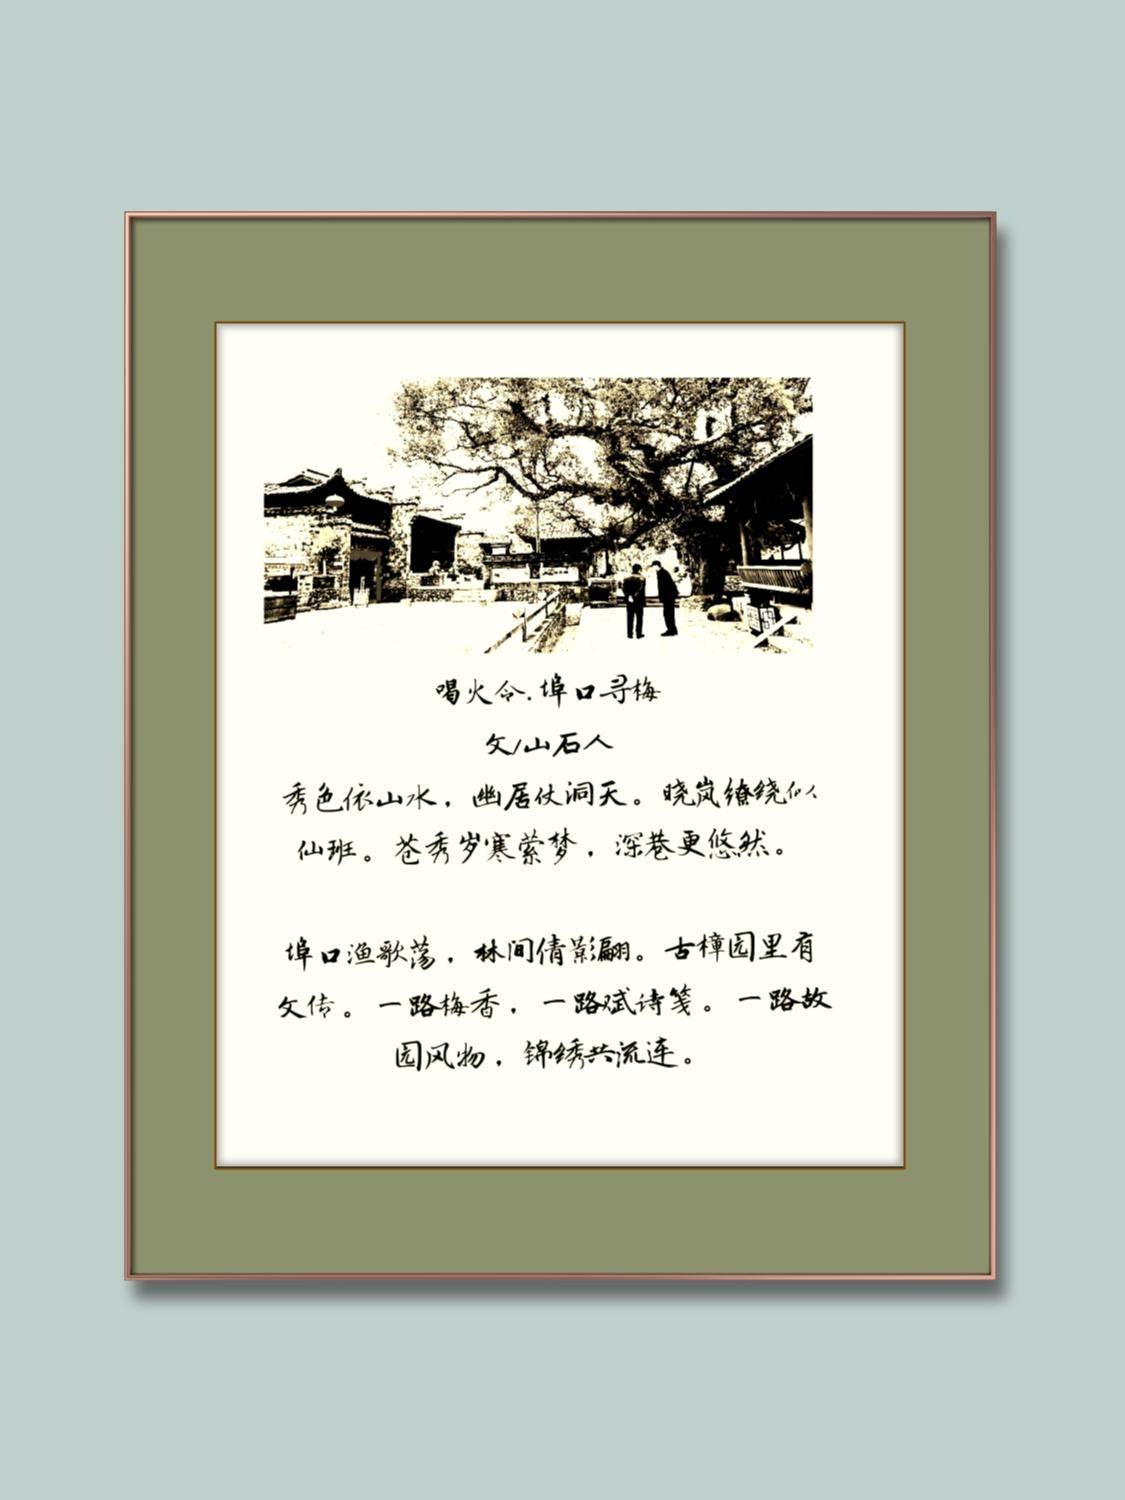 喝火令.埠口寻梅
文/山石人
秀色依山水，幽居仗洞天。晓岚缭绕似
仙班。苍秀岁寒萦梦，深巷更悠然。
埠口渔歌荡，林间倩影翩。古樟园里有
文传。一路梅香，一路赋诗笺。一路故
园风物，锦绣共流连。